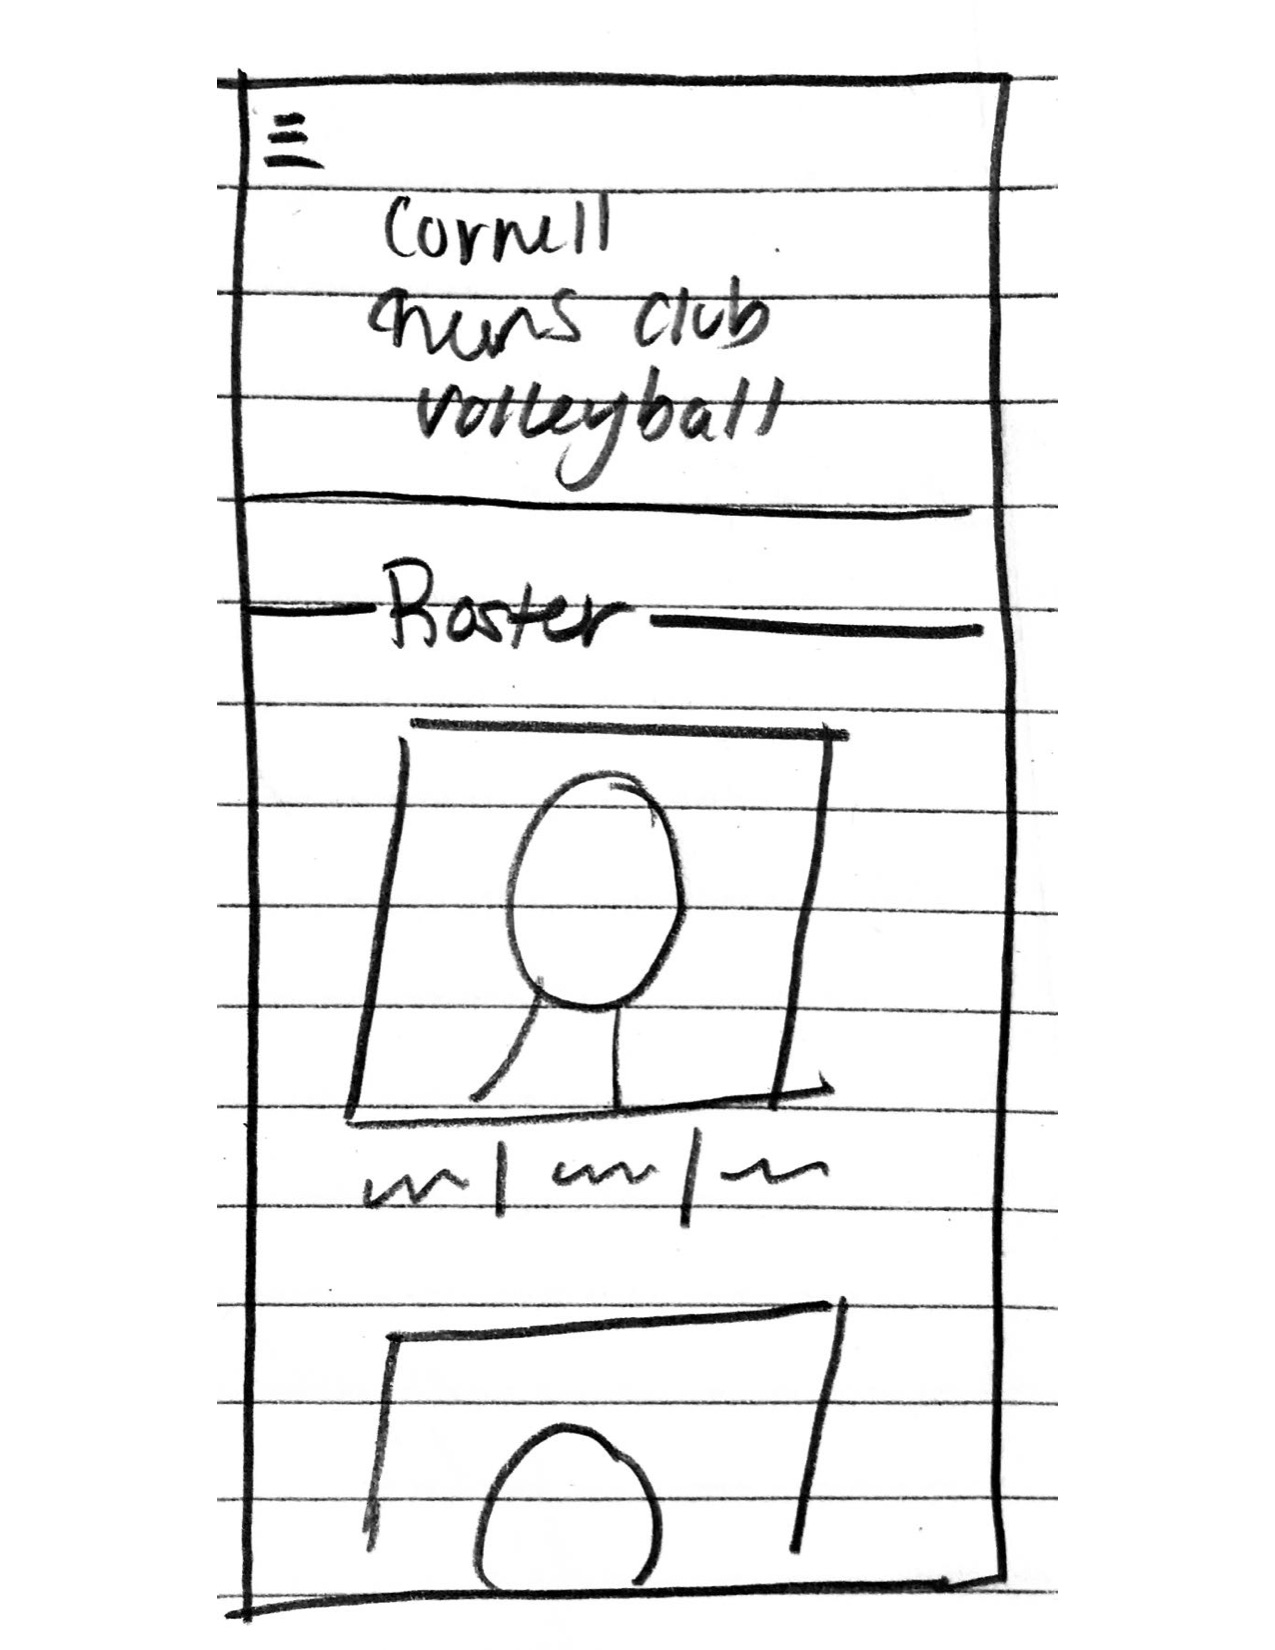 Cornell
mens club
volleyball
Roster